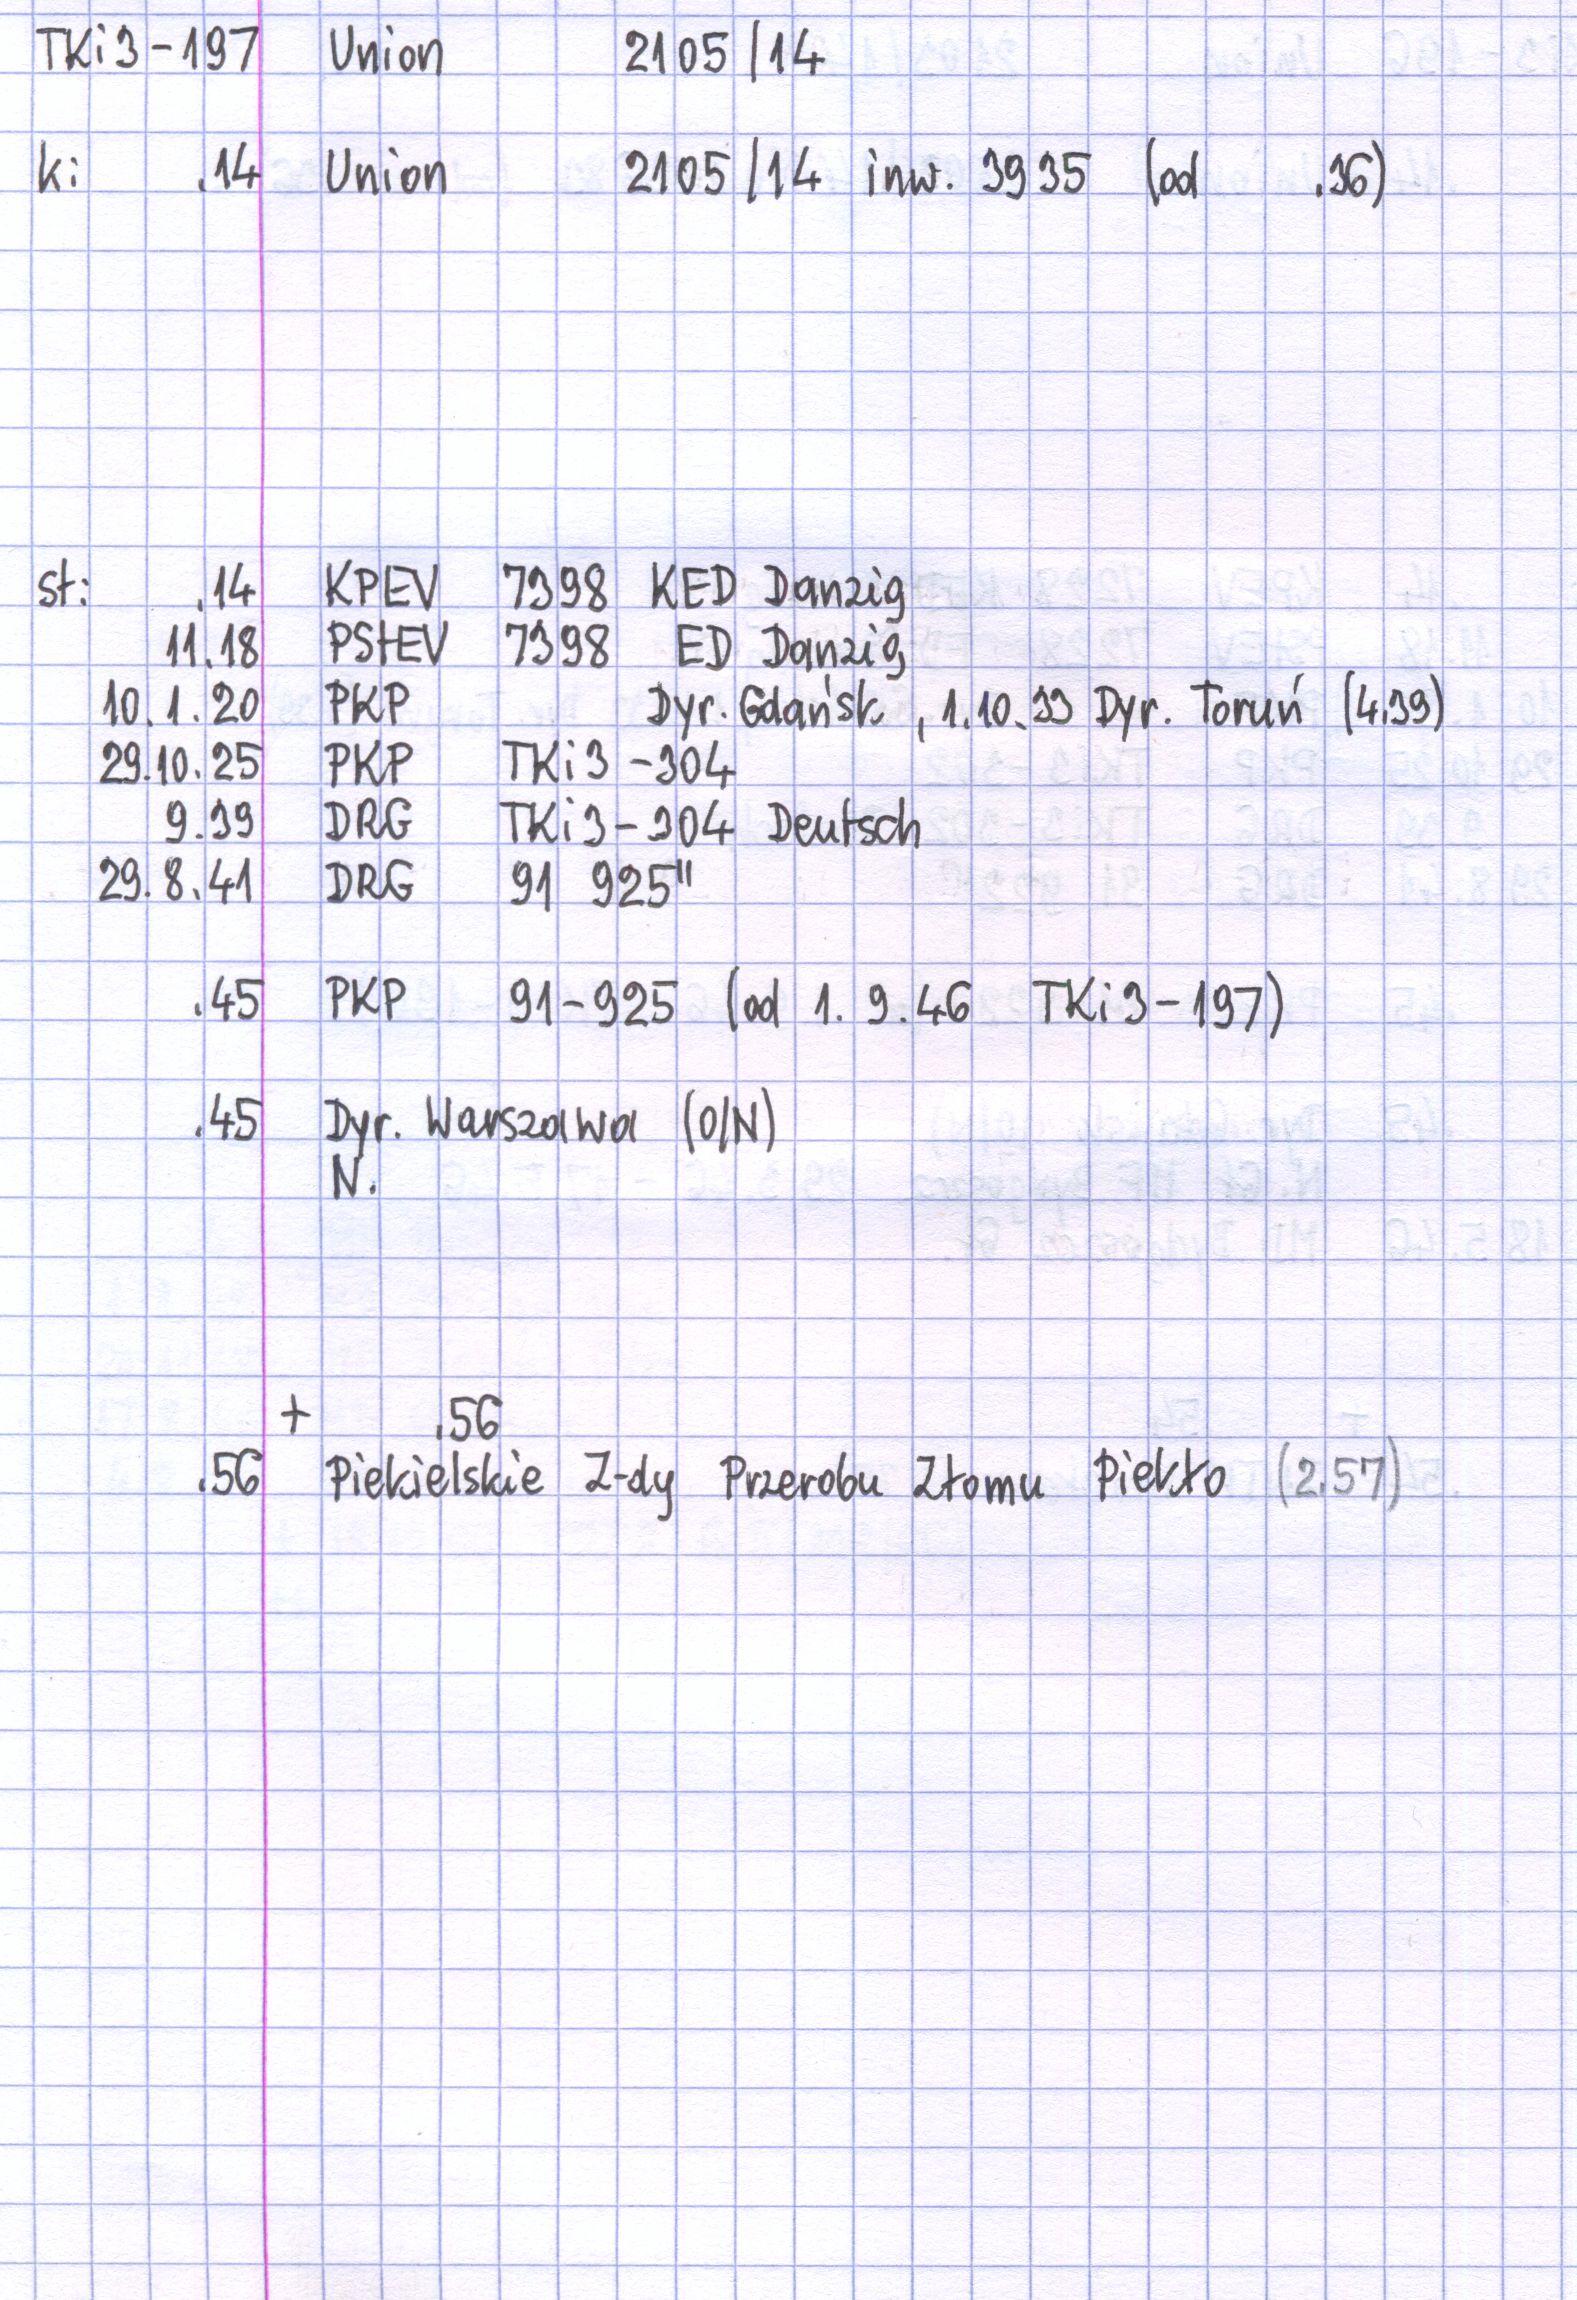 TKi3-197 Union 2105/14
ki: .14 Union 2105/14 inw. 3935 (od .36)
st: .14 KPEV 7398 KED Danzig
11.18 PStEV 7398 ED Danzig
10.1.20 PKP Dyr. Gdańsk, 1.10.33 Dyr. Toruń (4.39)
29.10.25 PKP TKi3-304
9.39 DRG TKi3-304 Deutsch
29.8.41 DRG 91 925"
.45 PKP 91-925 (od 1.9.46 TKi3-197)
.45 Dyr. Warszawa (O/N)
N.
+ .56
.56 Piekielskie Z-dy Przerobu Złomu Piekło (2.57)